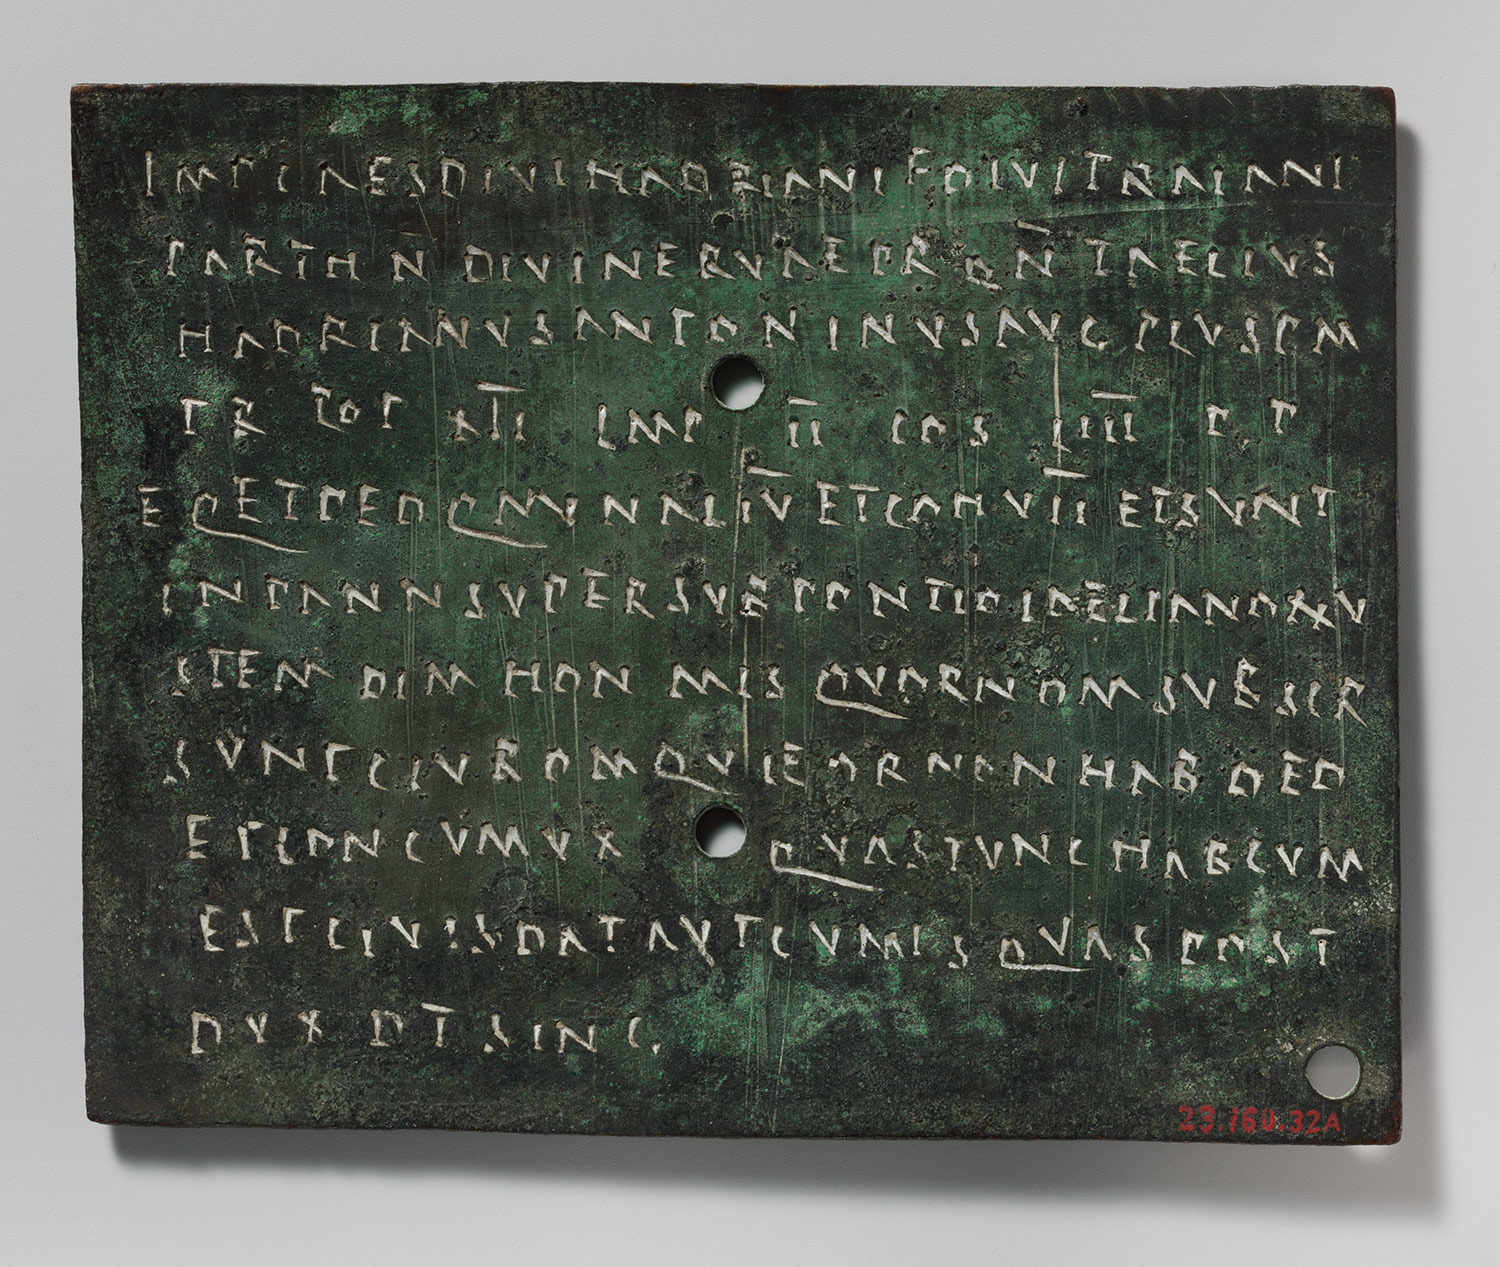 IMP CAES DIVI HADRIANI F DIVI TRAIANI
PARTH N DIVI NERVAE PRON T AELIUS
HADRIANVS ANTONINVS AVG PIVS P M
TR POT XII IMP II COS IIII P P
EQ ET PED Q M IN AL IV ET COH VII ET SVNT
IN PANN SVPER SVB PONTIO LAELIANO XXV
STEM DIM HON MIS QVOR NOM SVB SCR
SVNT CIV ROM QVI EOR NON HAB DED
ET CON CVM VX QVAS TVNC HAB CVM
EST CIV IS DAT AVT CVM IS QVAS POST
DVX DT SINC
23.160.32A